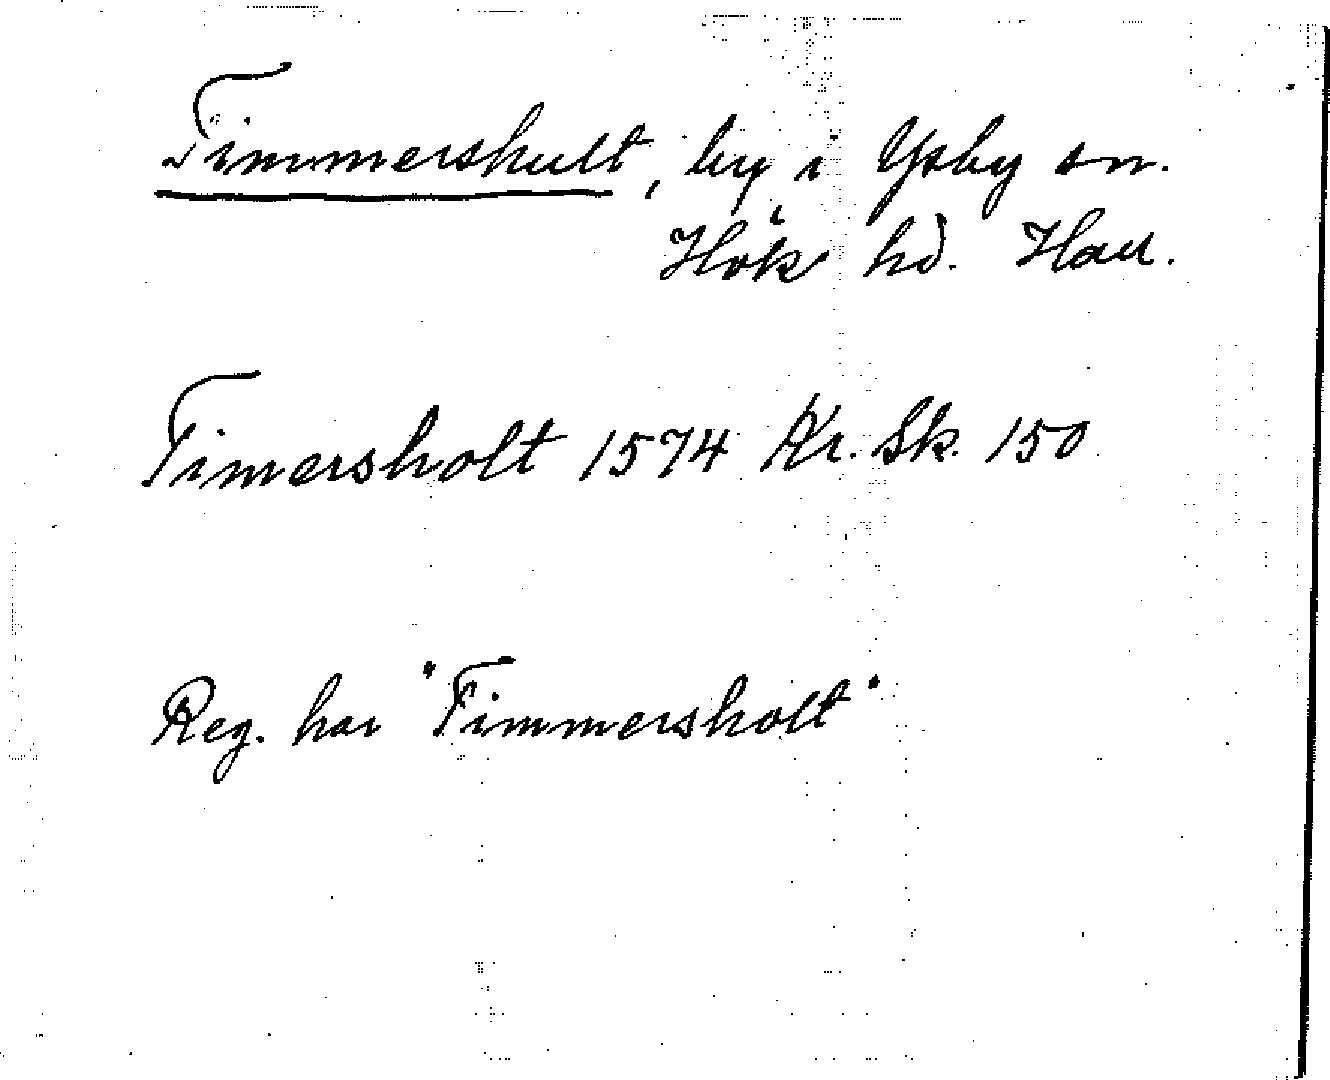 Timmershult, by i Ysby sn.
Hök hd. Hall.
Timersholt 1574 Kr. Sk. 150
Reg. har "Fimmersholt"